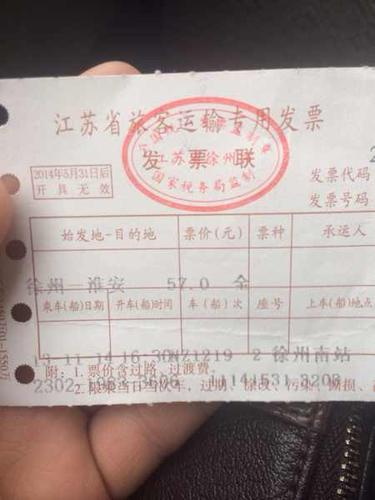 江苏省旅客运输专用发票
江苏 徐州
国家税务局监制
发票联
2014年5月31日后
开具无效
发票代码
发票号码
始发地-目的地 票价(元) 票种 承运人
徐州—淮安 57.0 全
乘车(船)日期 开车(船)时间 车(船)次 座号 上车(船)地点
16:30 NZ1219 2 徐州南站
附:1.票价含过路、过渡费。
2.限乘当日当次车,过期、涂改、污染、撕损、